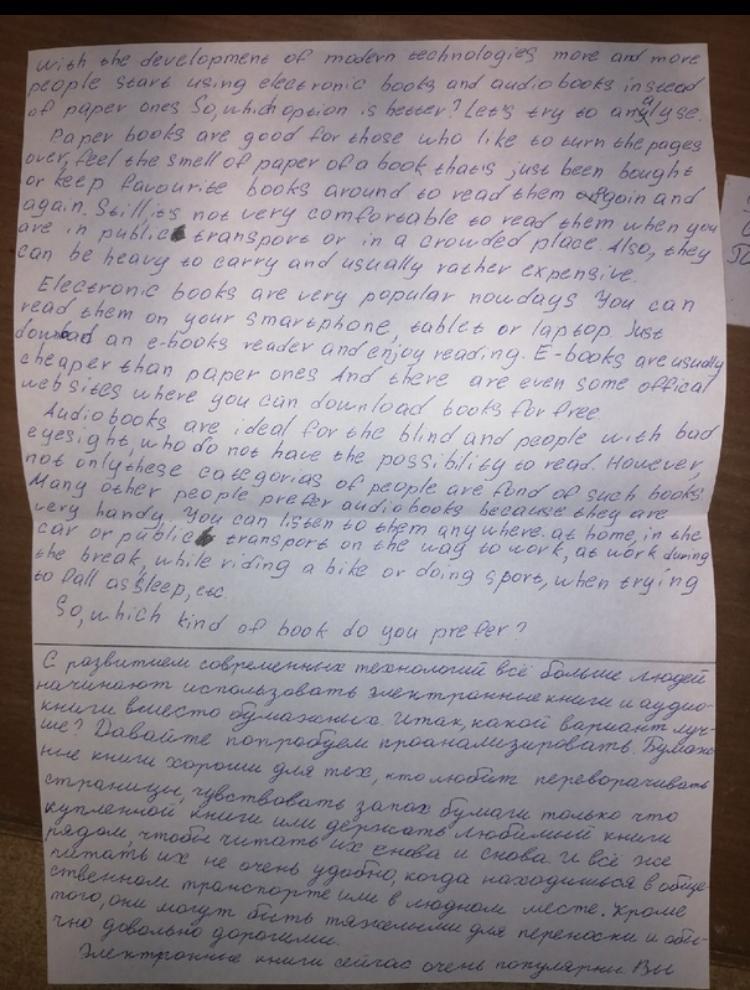 with the development of modern technologies more and more
people start using electronic books and audiobooks instead
of paper ones So, which option is better? Let's try to analyse.
Paper books are good for those who like to turn the pages
over, feel the smell of paper of a book that's just been bought
or keep favourite books around to read them again and
again. Still it's not very comfortable to read them when you
are in public transport or in a crowded place. Also, they
can be heavy to carry and usually rather expensive.
Electronic books are very popular nowdays You can
read them on your smartphone, tablet or laptop. Just
download an e-books reader and enjoy reading. E-books are usually
cheaper than paper ones And there are even some offical
web sites where you can download books for free.
Audiobooks are ideal for the blind and people with bad
eyesight, who do not have the possibility to read. However,
not only these categorias of people are fond of such books.
Many other people prefer audiobooks because they are
very handy. You can listen to them anywhere. at home, in the
car or public transport on the way to work, at work during
the break, while riding a bike or doing sport, when trying
to Dall asSleep, etc.
So, which kind of book do you prefer?
С развитием современных технологий всё больше людей
начинают использовать электранные книги и аудио-
книги вместо бумажных. Итак, какой вариант луч-
ше? Давайте попробуем проанализировать. Бумаж
ные книги хороши для тех, кто любит переворачивать
страницы, чувствовать запах бумаги только что
купленной книги или держать любимый книги
рядом, чтобы читать их снова и снова. И всё же
читать их не очень удобно, когда находишься в обще-
ственном транспорте или в людном месте. Кроме
того, они могут быть тяжелыми для переноски и обы-
чно довольно дорогими.
Электронные книги сейчас очень популярны. Вы